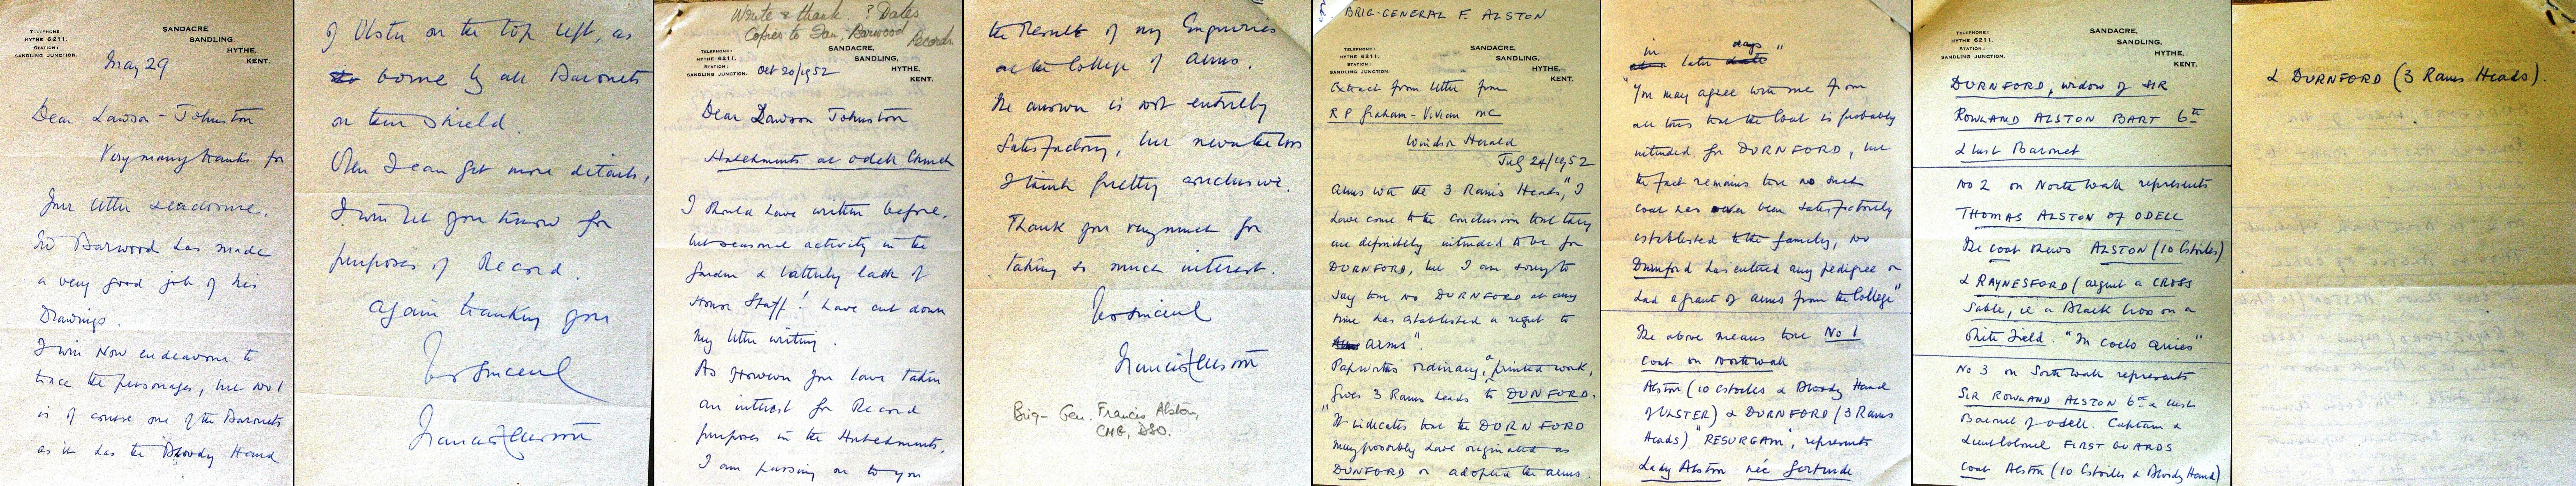 TELEPHONE:
HYTHE 6211.
STATION:
SANDLING JUNCTION.
SANDACRE,
SANDLING,
HYTHE,
KENT.
May 29
Dear Lawson-Johnston
Very many thanks for
Your letter & enclosure.
Barwood has made
a very good job of his
Drawings.
I will Now endeavour to
trace the personages, but No 1
is of course one of the Baronets
as it has the Bloody Hand
of Ulster on the top left, as
borne by all Baronets
on their Shield.
When I can get more details,
I will let you know for
purposes of Record.
Again thanking you
Yrs sincerely
Francis Alston
Write & thank. ? Dates
Copies to Ian, Barwood
Records
TELEPHONE:
HYTHE 6211.
STATION:
SANDLING JUNCTION.
SANDACRE,
SANDLING,
HYTHE,
KENT.
Oct 20/1952
Dear Lawson Johnston
Hatchments at Odell Church
I should have written before,
but seasonal activity in the
Garden & latterly lack of
House Staff! have cut down
my letter writing.
As However you have taken
an interest for Record
purposes in the Hatchments,
I am passing on to you
the Result of my Enquiries
at the College of Arms.
The answer is not entirely
Satisfactory, but nevertheless
I think pretty conclusive.
Thank you very much for
taking so much interest.
Yrs sincerely
Francis Alston
Brig-Gen. Francis Alston,
CMG, DSO.
BRIG-GENERAL F. ALSTON
TELEPHONE:
HYTHE 6211.
STATION:
SANDLING JUNCTION.
SANDACRE,
SANDLING,
HYTHE,
KENT.
Extract from letter from
R P Graham-Vivian MC
Windsor Herald
July 24/1952
Arms with the 3 Ram's Heads, "I
have come to the conclusion that they
are definitely intended to be for
DURNFORD, but I am sorry to
say that no DURNFORD at any
time has established a right to
arms".
Papworth's ordinary, "a printed work,
Gives 3 Rams heads to DUNFORD.
"It indicates that the DURNFORD
may possibly have originated as
DUNFORD or adopted the arms
in later days"
"You may agree with me from
all this that the Coat is probably
intended for DURNFORD, but
the fact remains that no such
coat has ever been satisfactorily
established to the family; no
Durnford has entered any pedigree or
had a grant of arms from the College"
The above means that No 1
coat on North wall
Alston (10 Estoiles & Bloody Hand
of ULSTER) & DURNFORD (3 Rams
Heads) "RESURGAM", represents
Lady Alston née Gertrude
TELEPHONE:
HYTHE 6211.
STATION:
SANDLING JUNCTION.
SANDACRE,
SANDLING,
HYTHE,
KENT.
DURNFORD, widow of SIR
ROWLAND ALSTON BART 6th
& last Baronet
No 2 on North wall represents
THOMAS ALSTON OF ODELL
The coat shews ALSTON (10 Estoiles)
& RAYNESFORD (argent a CROSS
Sable, ie a Black Cross on a
White Field. "In Coelo Quies"
No 3 on South wall represents
SIR ROWLAND ALSTON 6th & last
Baronet of Odell. Captain &
Lieut Colonel FIRST GUARDS
Coat Alston (10 Estoiles & Bloody Hand)
& DURNFORD (3 Rams Heads).